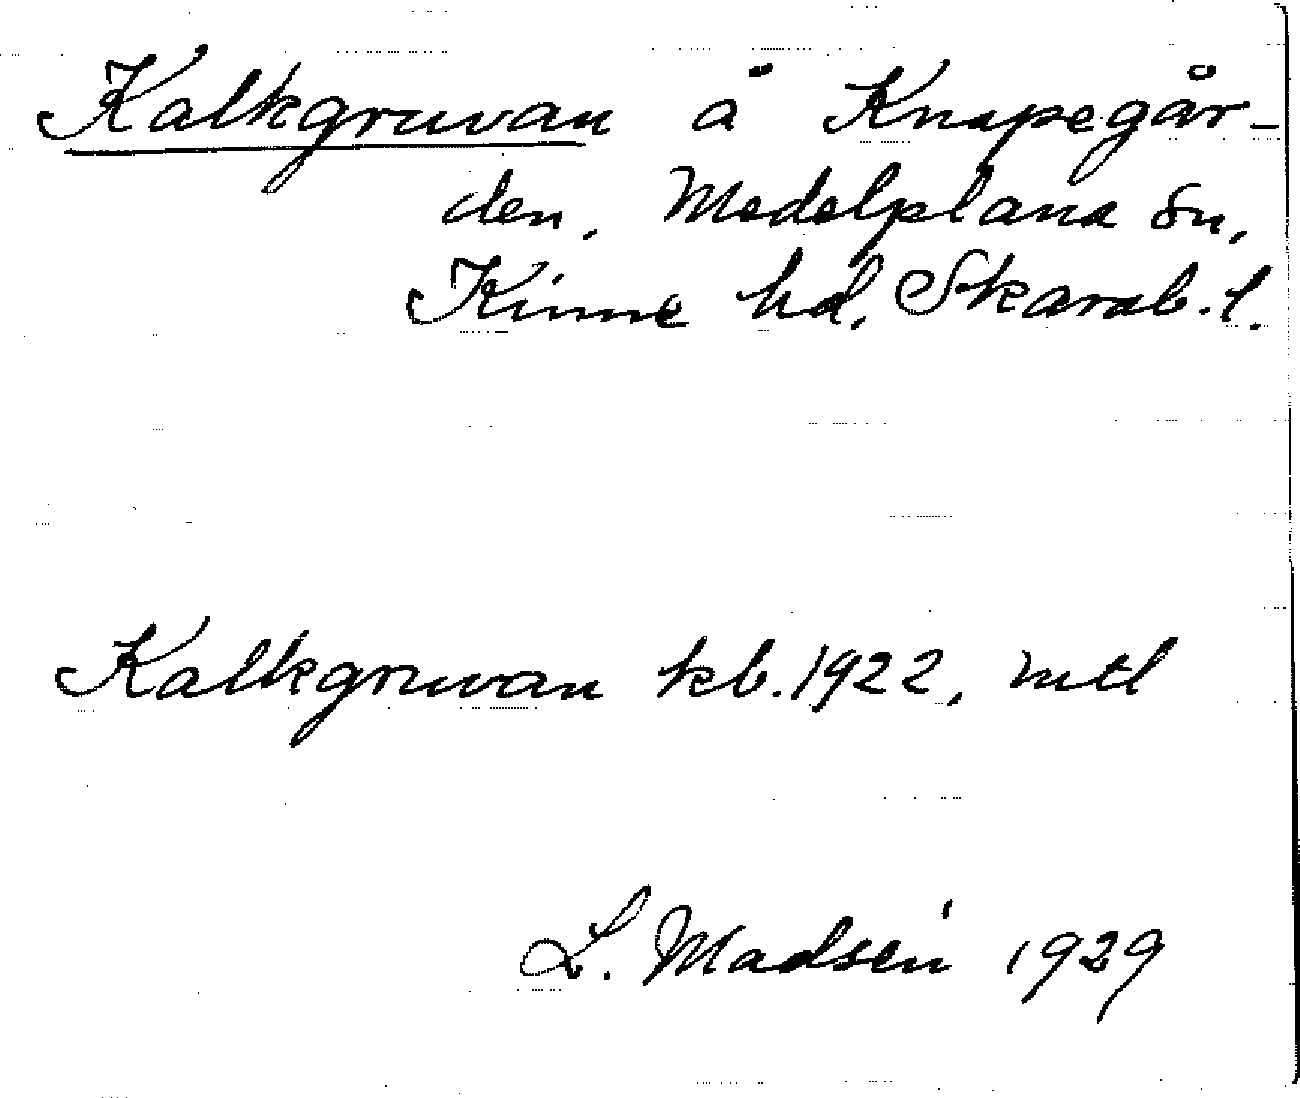 Kalkgruvan å Knapegår-
den, Medelplana sn,
Kinne hd, Skarab. l.
Kalkgruvan kb. 1922, mtl
L. Madsén 1929